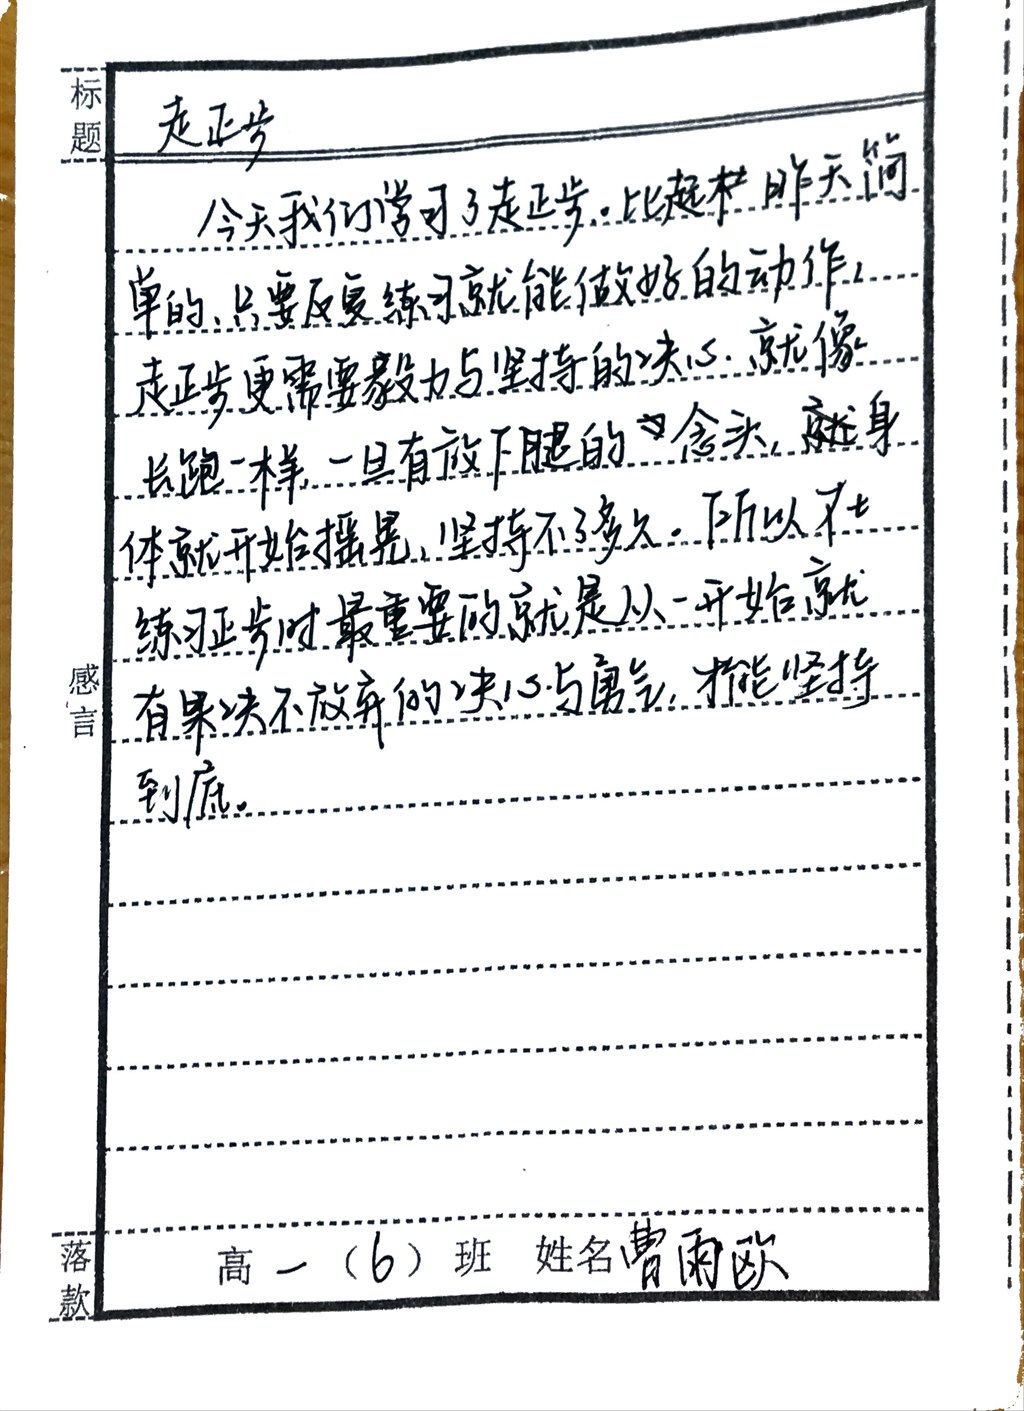 标题
走正步
今天我们学习了走正步。比起昨天简
单的、只要反复练习就能做好的动作,
走正步更需要毅力与坚持的决心。就像
长跑一样,一旦有放下腿的念头,就身
体就开始摇晃,坚持不了多久。所以在
练习正步时最重要的就是从一开始就
有果决不放弃的决心与勇气,才能坚持
到底。
感言
落款
高一(6)班 姓名曹雨欧